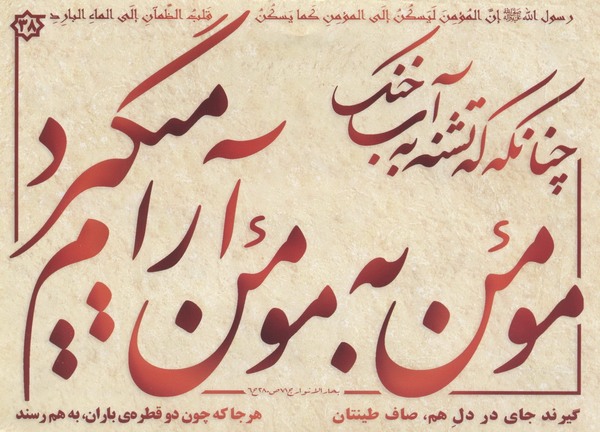 رسول الله ﷺ إنَّ المُؤمِنَ لَيَسكُنُ إلَى المؤمِنِ كَما يَسكُنُ قَلبُ الظَّمآنِ إلَى الماءِ البارِدِ
۳۸
چنانکه که تشنه به آب خنک
مؤمن به مؤمن آرام میگیرد
بحارالانوار ج۷۱ ص۲۸۰ ح۶
گیرند جای در دلِ هم، صاف طینتان هرجا که چون دو قطره‌ی باران، به هم رسند